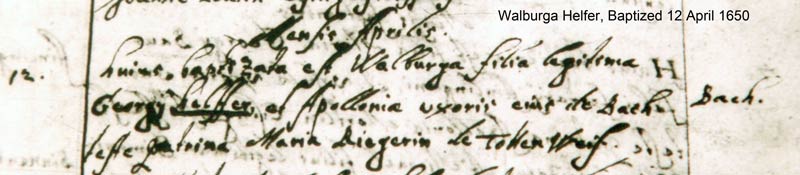 Walburga Helfer, Baptized 12 April 1650
Mensis Aprilis.
12. huius, baptizata est Walburga filia legitima H
Georgy helffer, et Apolloniæ uxoris eius de Bach. Bach.
teste patrina Maria Riegerin de